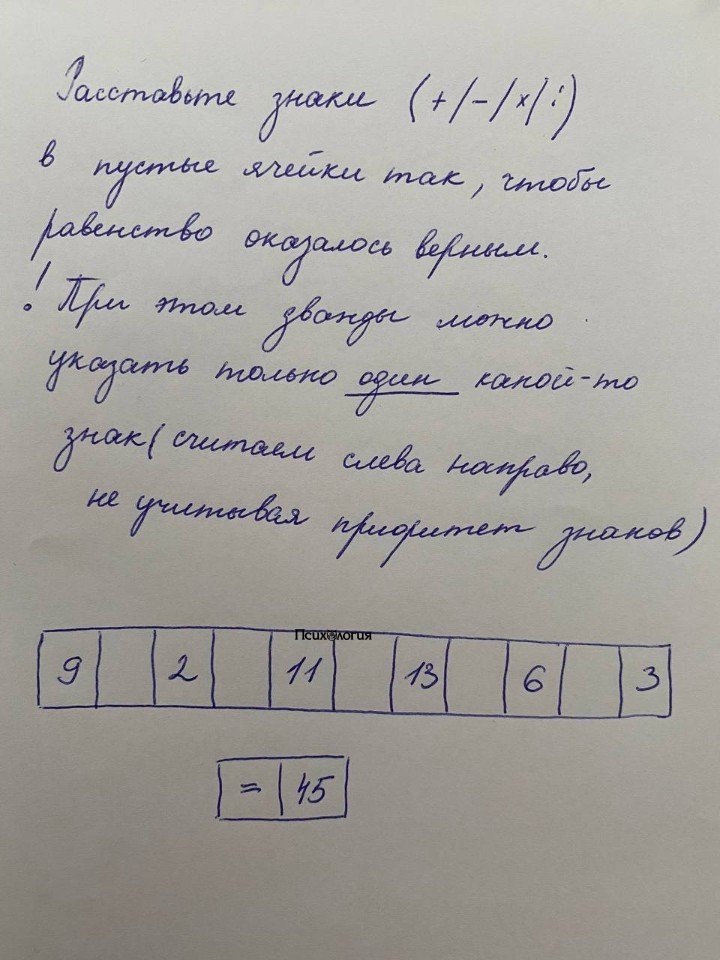 Расставьте знаки (+/-/×/:)
в пустые ячейки так, чтобы
равенство оказалось верным.
! При этом дважды можно
указать только один какой-то
знак (считаем слева направо,
не учитывая приоритет знаков)
Психология
9 2 11 13 6 3
= 45